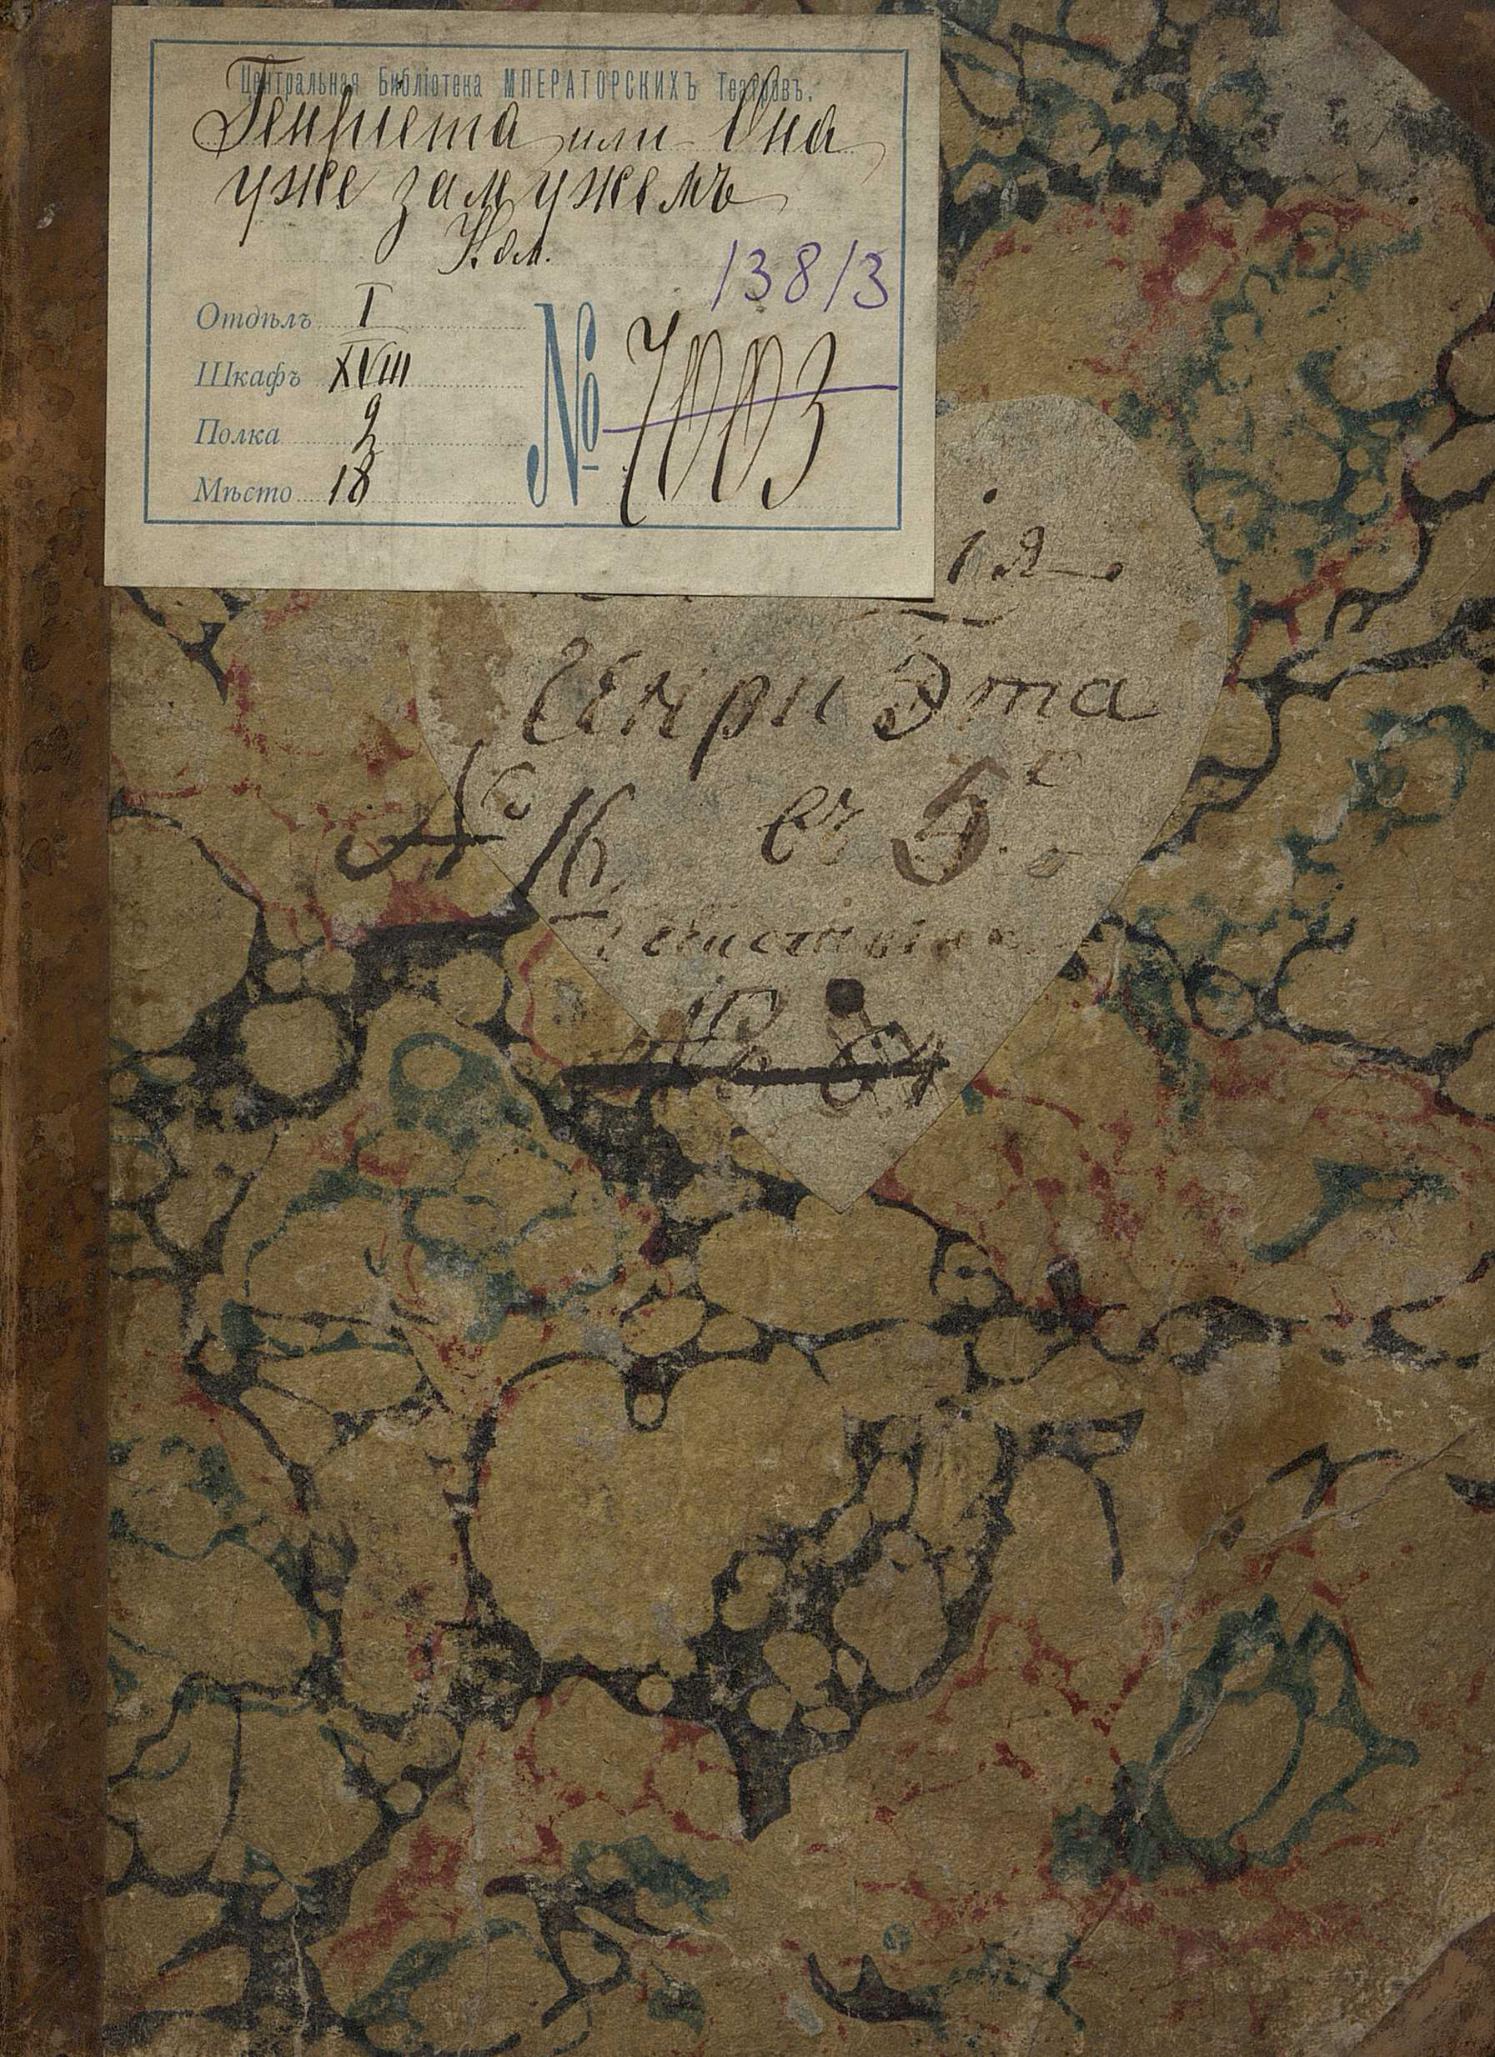 Центральная Библіотека ИМПЕРАТОРСКИХЪ Театровъ.
Генриета или Она
уже замужемъ
Ком.
13813
Отдѣлъ I
Шкафъ XVIII
Полка 2
Мѣсто 18
№ 7003
ія
ГенриЭта
№ 16. въ 5.
действіяхъ
№ 64